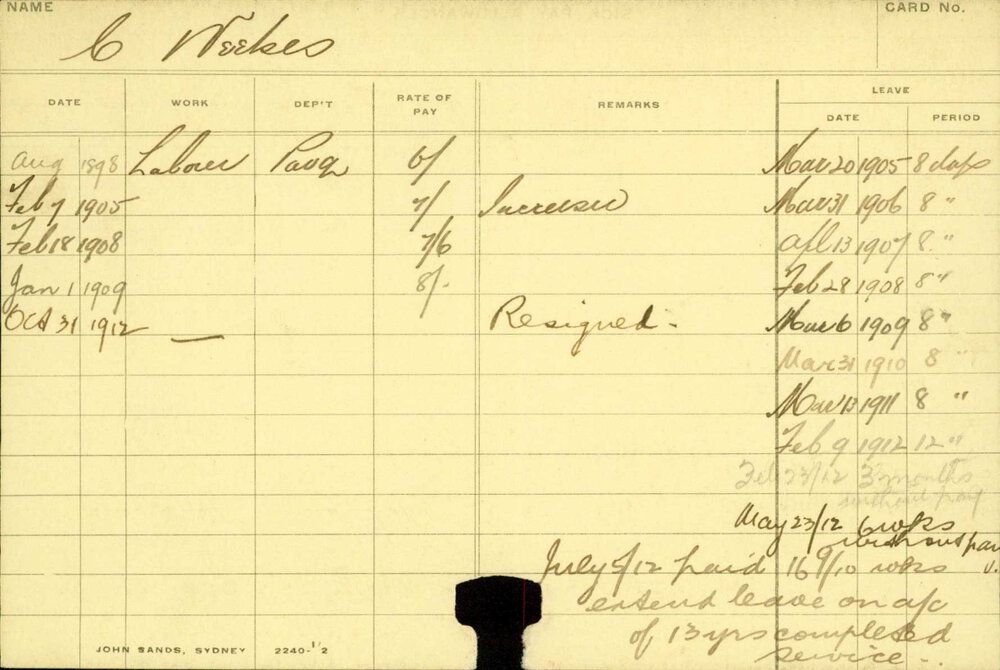 NAME
CARD No.
C Weekes
DATE WORK DEP'T RATE OF PAY REMARKS LEAVE
DATE PERIOD
Aug 1898 Labourer Pavg 6/ Mar 20 1905 8 days
Feb 7 1905 7/ Increase Mar 31 1906 8 "
Feb 18 1908 7/6 Apl 13 1907 8 "
Jan 1 1909 8/- Feb 28 1908 8 "
Oct 31 1912 — Resigned - Mar 6 1909 8 "
Mar 31 1910 8 "
Mar 13 1911 8 "
Feb 9 1912 12 "
Feb 23/12 3 months
without pay
May 23/12 6 wks
without pay
July 5/12 paid 16 9/10 wks
extend leave on a/c
of 13 yrs completed
service.
JOHN SANDS, SYDNEY 2240-1/2